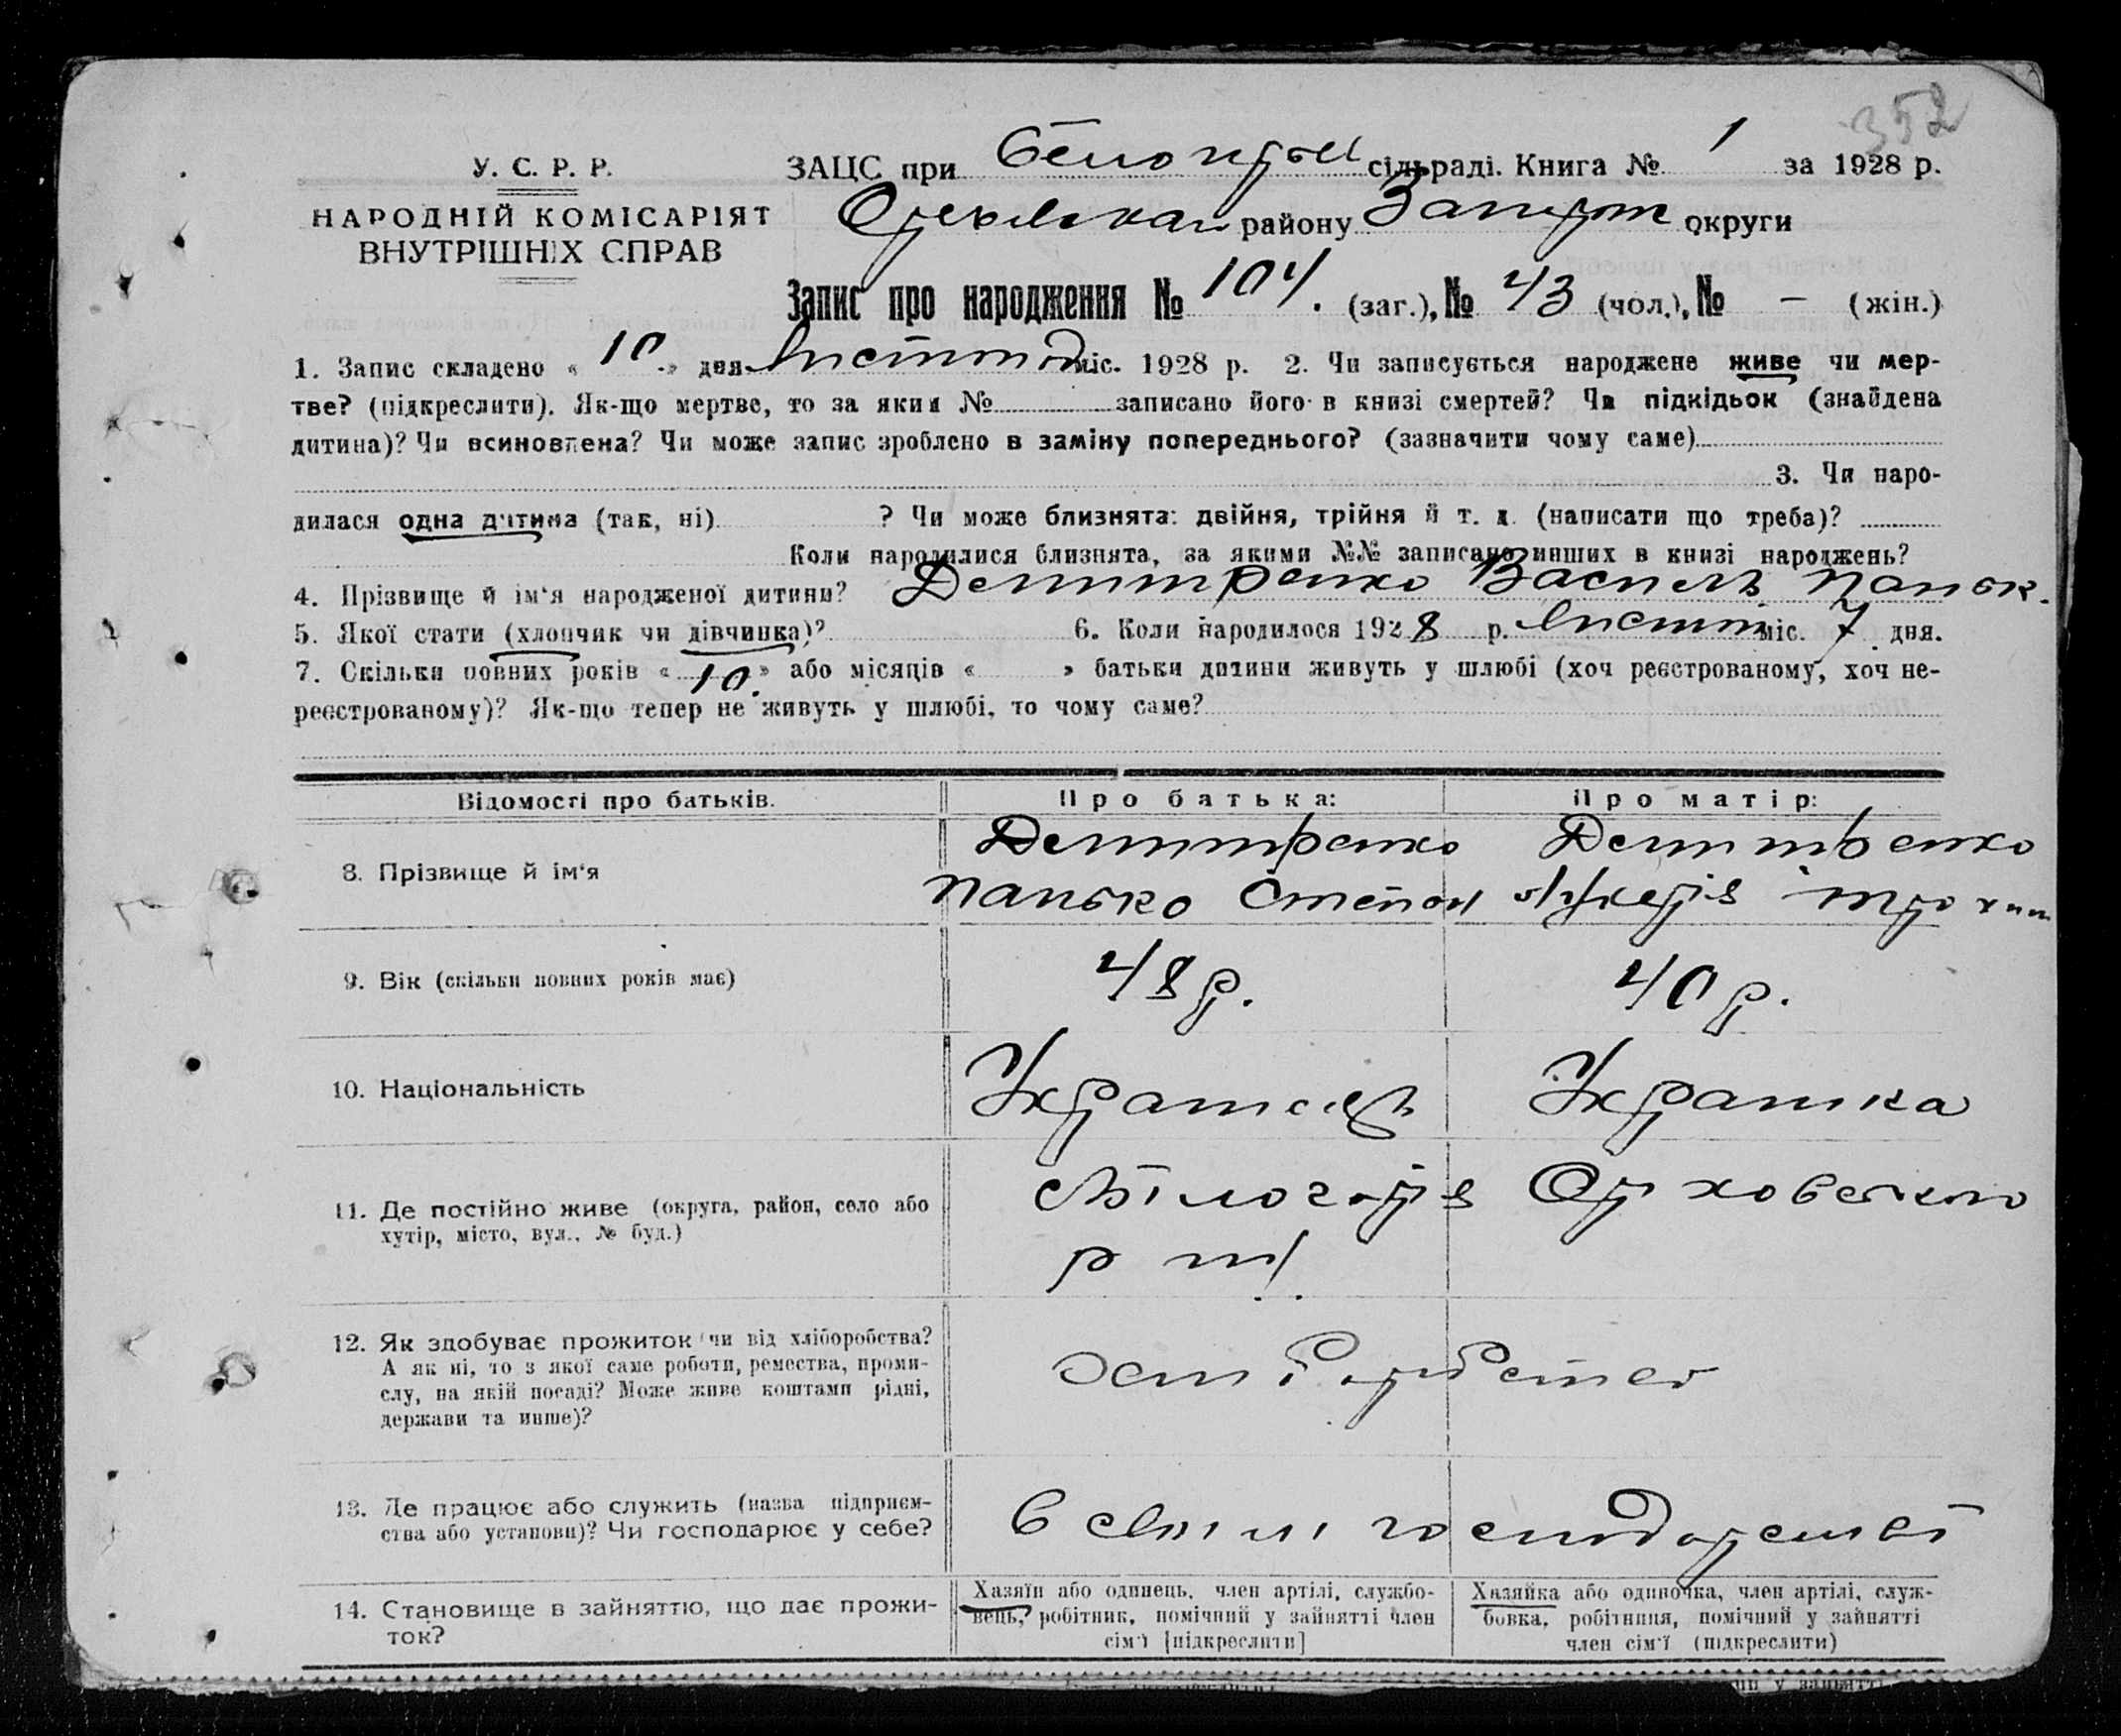 352
У. С. Р. Р.
НАРОДНІЙ КОМІСАРІЯТ
ВНУТРІШНІХ СПРАВ
ЗАЦС при сільраді. Книга № 1 за 1928 р.
району Запоріж округи
Запис про народження № 104. (заг.), № 43 (чол.), № — (жін.)
1. Запис складено « 10 » дня Листопад міс. 1928 р. 2. Чи записується народжене живе чи мер-
тве? (підкреслити). Як-що мертве, то за яким № записано його в книзі смертей? Чи підкідьок (знайдена
дитина)? Чи всиновлена? Чи може запис зроблено в заміну попереднього? (зазначити чому саме)
3. Чи наро-
дилася одна дитина (так, ні) ? Чи може близнята: двійня, трійня й т. д. (написати що треба)?
Коли народилися близнята, за якими №№ записано инших в книзі народжень?
4. Прізвище й ім‘я народженої дитини? Демитренко Василь Паньк.
5. Якої стати (хлопчик чи дівчинка)? 6. Коли народилося 1928 р. Листоп міс. 7 дня.
7. Скільки повних років « 10 » або місяців « » батьки дитини живуть у шлюбі (хоч реєстрованому, хоч не-
реєстрованому)? Як-що тепер не живуть у шлюбі, то чому саме?
Відомості про батьків. Про батька: Про матір:
8. Прізвище й ім‘я
Демитренко Демитренко
Панько Степан
9. Вік (скільки повних років має) 48 р. 40 р.
10. Національність Українець Українка
11. Де постійно живе (округа, район, село або
хутір, місто, вул., № буд.)
12. Як здобуває прожиток чи від хліборобства?
А як ні, то з якої саме роботи, ремества, проми-
слу, на якій посаді? Може живе коштами рідні,
держави та инше)?
13. Де працює або служить (назва підприєм-
ства або установи)? Чи господарює у себе?
в своїм господарстві
14. Становище в зайняттю, що дає прожи-
ток?
Хазяїн або одинець, член артілі, службо-
вець, робітник, помічний у зайнятті член
сім‘ї [підкреслити]
Хазяйка або одиночка, член артілі, служ-
бовка, робітниця, помічний у зайнятті
член сім‘ї (підкреслити)